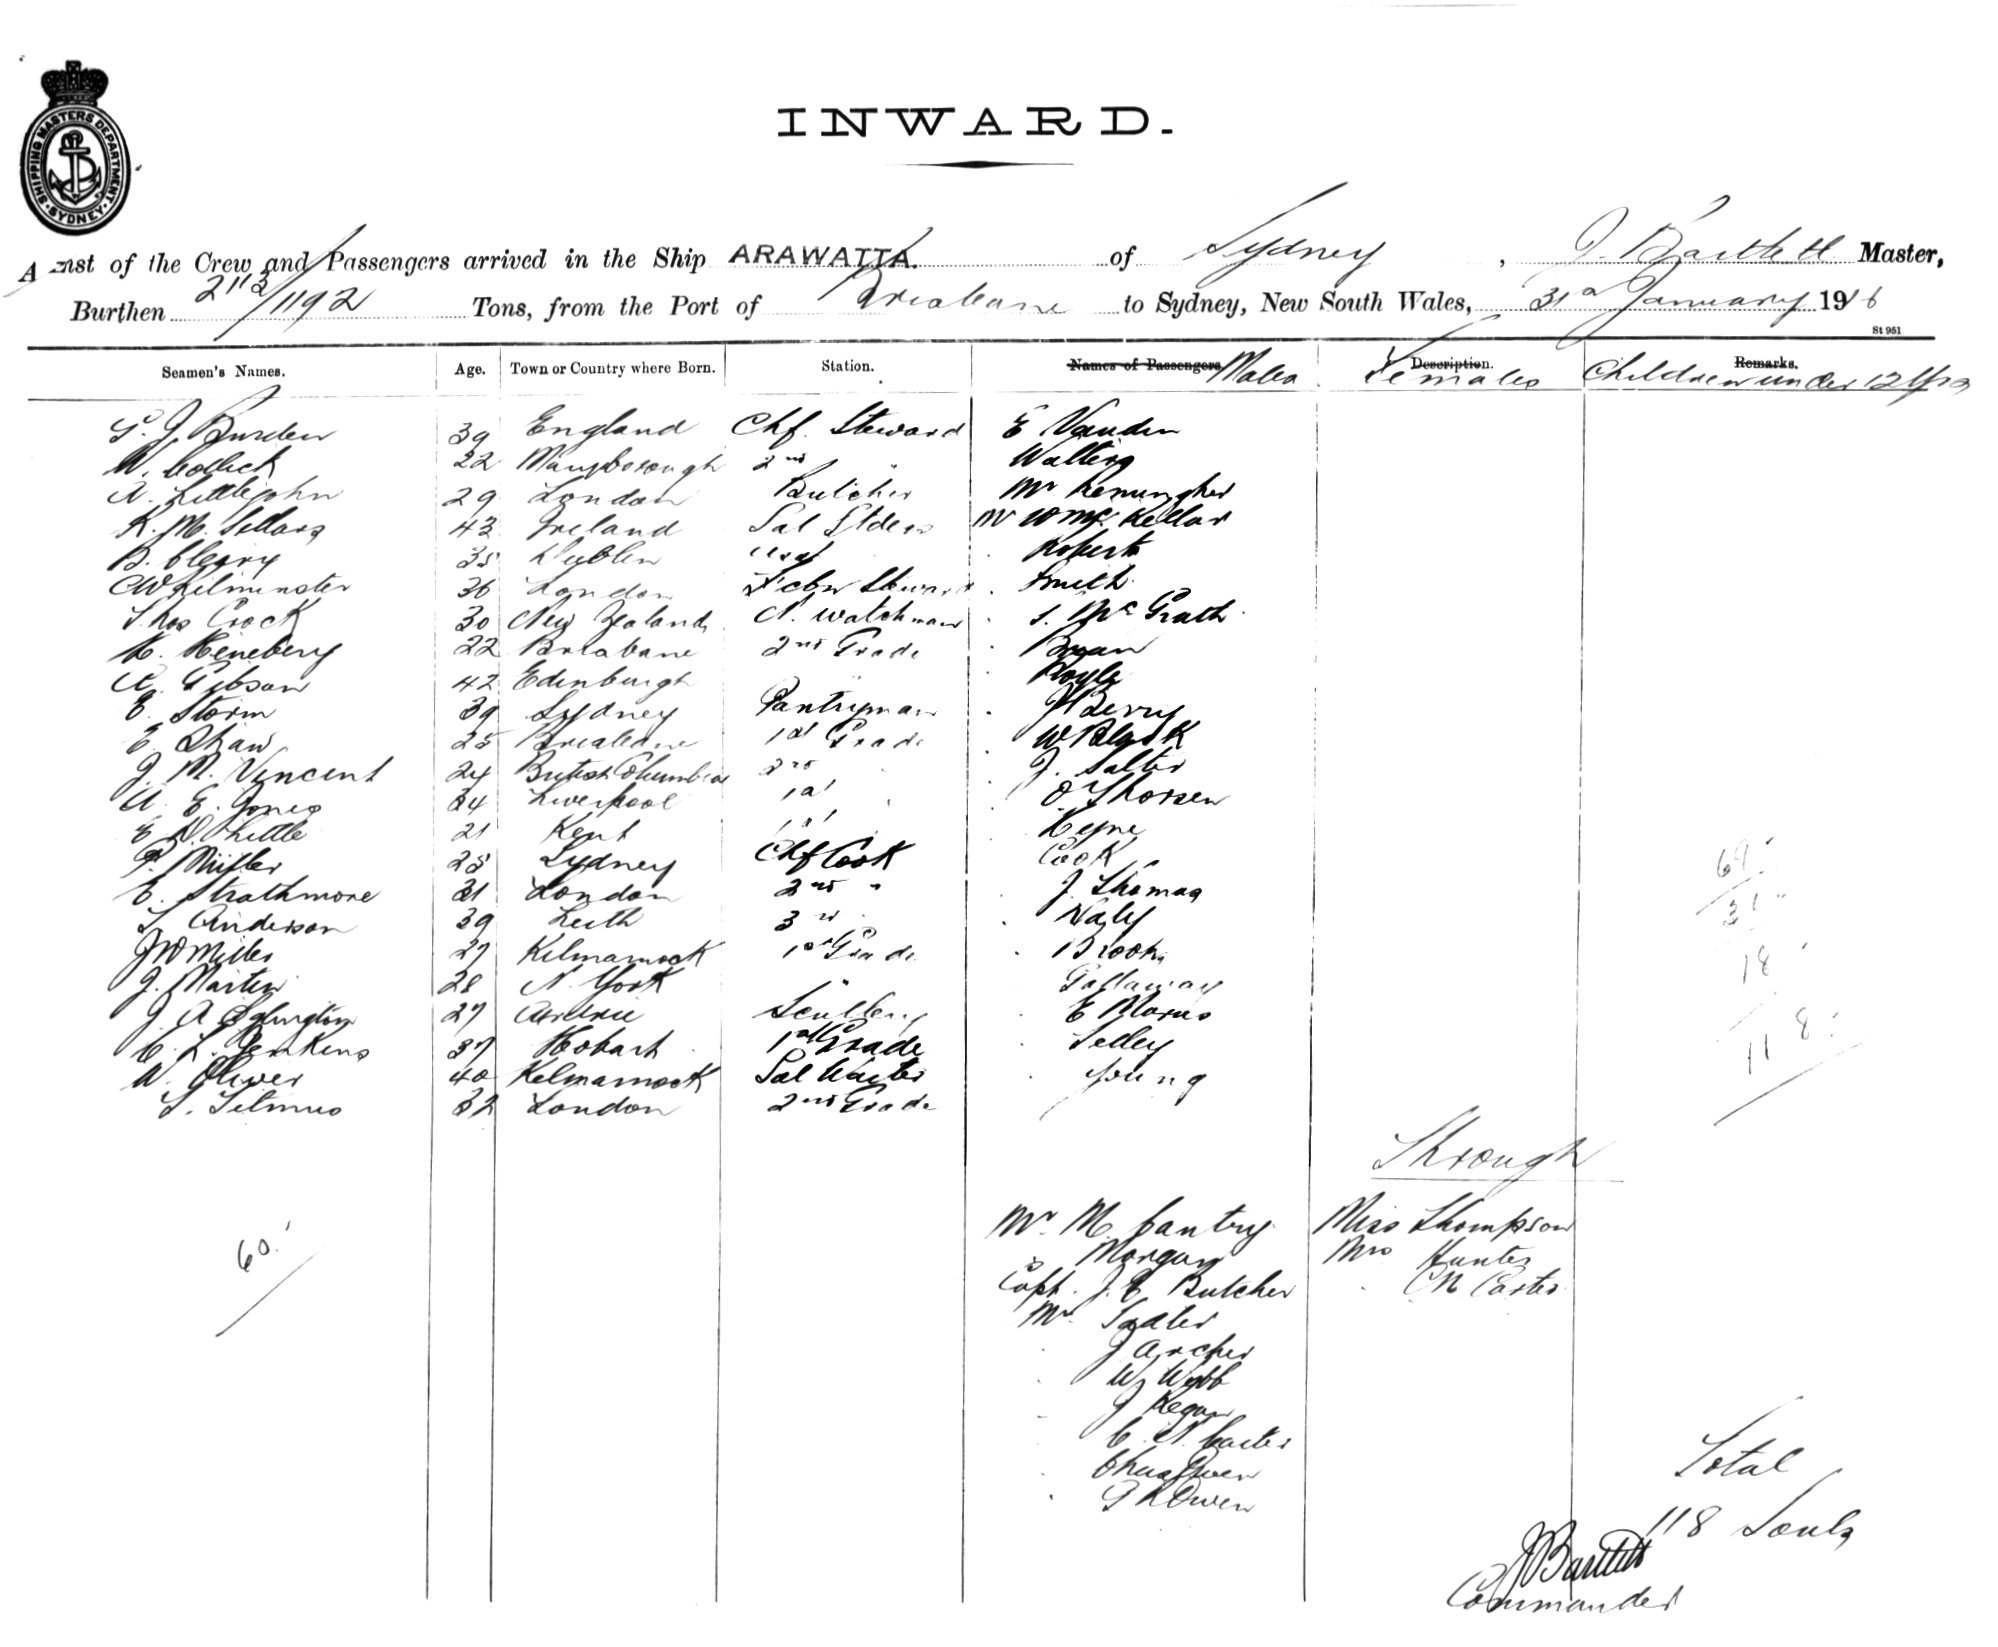 SHIPPING MASTERS DEPARTMENT. SYDNEY.
INWARD.
A List of the Crew and Passengers arrived in the Ship ARAWATTA. of Sydney, J. Bartlett Master,
Burthen 2113/1192 Tons, from the Port of Brisbane to Sydney, New South Wales, 31st January 1916
St 951
Seamen's Names. Age. Town or Country where Born. Station. Names of Passengers Males Description. Females Remarks. Children under 12 yrs
Burden 39 England Chf. Steward E Vanden
W. Collick 22 Maryborough 2nd " Walters
A. Littlejohn 29 London Butcher Mr
K. M. Sellars 43 Ireland Mr W Mc Kellar
B. Cleary 35 Dublin Roberts
Kilminster 36 London Steward Smith
Thos Crock 30 New Zealand N. Watchman McGrath
H. Heneberg 22 Brisbane 2nd Grade
A. Gibson 42 Edinburgh Doyle
E. Storm 39 Sydney Pantryman Berry
E. Shaw 25 Brisbane 1st Grade W Black
J. M. Vincent 24 British Columbia 2nd J. Salter
A. E. Jones 34 Liverpool 1st O. Thorsen
E D. Little 21 Kent 1st Heyne
P. Miller 25 Sydney Chf Cook Cook
E. Strathmore 31 London 2nd " J. Thomas
Anderson 39 Leith 3rd Daly
J W Miller 27 Kilmarnock 1st Grade Brooks
J. Martin 28 N. York Gallaway
J A Eglington 27 Airdrie Scullery E Morris
C. L. Jenkins 37 Hobart 1st Grade Selley
W. Oliver 40 Kilmarnock Sal Waiter Young
Titmus 32 London 2nd Grade
69
31
18
118
Through
60
Mr M. Cantry Miss Thompson
" Morgan Mrs Hunter
Capt. J. E Butcher " C N Carter
Mr. Sadler
J Archer
W Webb
J Regan
C. N. Carter
Chas Owen
Owen
Total
118 Souls
J Bartlett
Commander